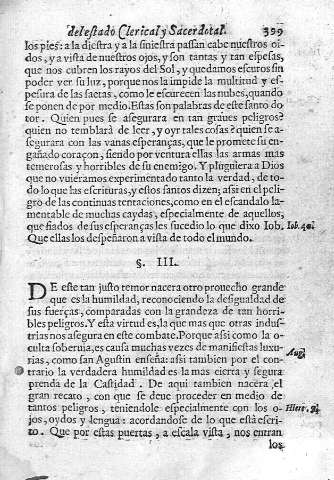 del estado Clerical y Sacerdotal. 399
los pies: a la diestra y a la siniestra passan cabe nuestros oi-
dos, y a vista de nuestros ojos, y son tantas y tan espesas,
que nos cubren los rayos del Sol, y quedamos escuros sin
poder ver su luz, porque nos la impide la multitud y es-
pesura de las saetas, como le escurecen las nubes, quando
se ponen de por medio. Estas son palabras de este santo do
tor. Quien pues se assegurara en tan graues peligros?
quien no temblarà de leer, y oyr tales cosas? quien se a-
segurara con las vanas esperanças, que le promete su en-
gañado coraçon, siendo por ventura ellas las armas mas
temerosas y horribles de su enemigo. Y pluguiera a Dios
que no vuieramos experimentado tanto la verdad, de to-
do lo que las escrituras, y estos santos dizen; assi en el peli-
gro de las continuas tentaciones, como en el escandalo la-
mentable de muchas caydas, especialmente de aquellos,
que fiados de sus esperanças les sucedio lo que dixo Iob. Iob. 40.
Que ellas los despeñaron a vista de todo el mundo.
§. III.
DE este tan justo temor nacera otro prouecho grande
que es la humildad, reconociendo la desigualdad de
sus fuerças, comparadas con la grandeza de tan horri-
bles peligros. Y esta virtud es, la que mas que otras indus-
trias nos asegura en este combate. Porque assi como la o-
culta soberuia, es causa muchas vezes de manifiestas luxu-
rias, como san Agustin enseña: assi tambien por el con- Aug.
trario la verdadera humildad es la mas cierta y segura
prenda de la Castidad. De aqui tambien nacera el
gran recato, con que se deue proceder en medio de
tantos peligros, teniendole especialmente con los o- Hiere. 9.
jos, oydos y lengua: acordandose de lo que està escri-
to. Que por estas puertas, a escala vista, nos entran
los